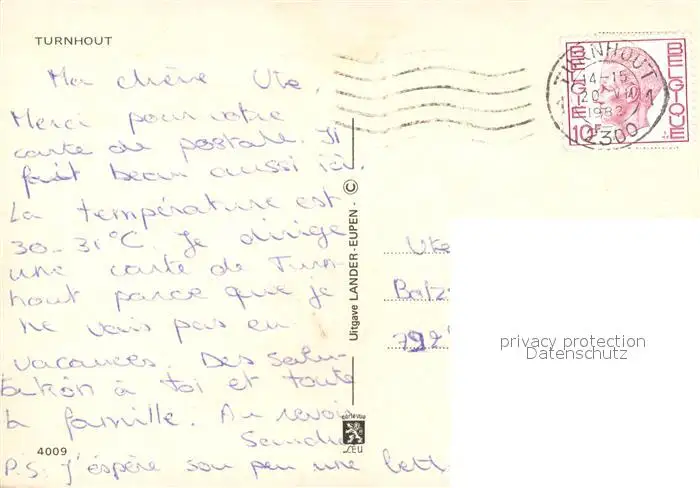 TURNHOUT
Ma chère Ute,
Merci pour votre
carte de postale. Il
fait beau aussi ici.
La température est
30-31°C. Je dirige
une carte de Turn-
hout parce que je
ne vais pas en
vacances. Des Salu-
takön à toi et toute
la famille. Au revoir
Sandra
4009
P.S. j'espère son peu une lett
Uitgave LANDER-EUPEN - ©
LEU
BELGIË BELGIQUE
10F
TURNHOUT 1
14-15
20 VII
1982
2300
Ute
Balz
792
privacy protection
Datenschutz